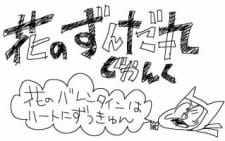 花のずんだれ
じゃんく
花のバレンタインは
ハートにずっきゅん